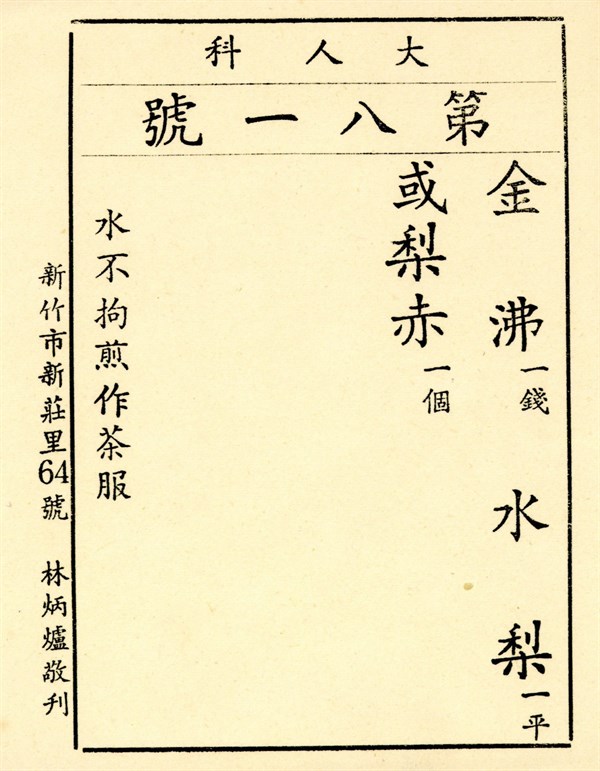 大人科
第八一號
金沸一錢 水梨一平
或梨赤一個
水不拘煎作茶服
新竹市新莊里64號 林炳爐敬刊